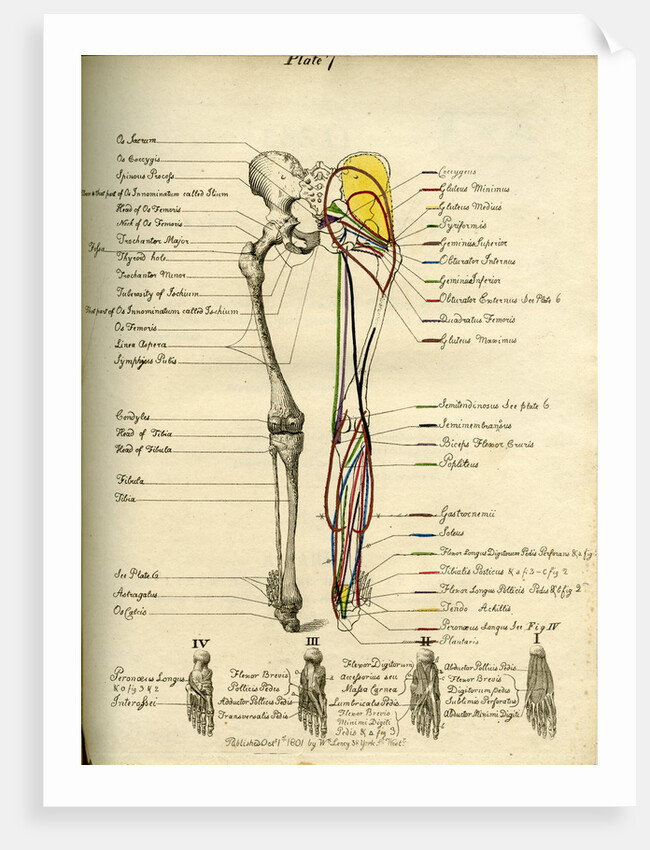 Plate 7
Os Sacrum
Os Coccygis
Spinous Process
that part of Os Innominatum called Ilium
Head of Os Femoris
Neck of Os Femoris
Trochantor Major
Fossa
Thyroid hole
Trochantor Minor
Tuberosity of Ischium
That part of Os Innominatum called Ischium
Os Femoris
Linea Aspera
Symphysis Pubis
Condyles
Head of Tibia
Head of Fibula
Fibula
Tibia
See Plate 6
Astragatus
Os Calcis
Coccygeus
Gluteus Minimus
Gluteus Medius
Pyriformis
Geminis Superior
Obturator Internus
Geminus Inferior
Obturator Externus See Plate 6
Quadratus Femoris
Gluteus Maximus
Semitendinosus See plate 6
Semimembranosus
Biceps Flexor Cruris
Popliteus
Gastrocnemii
Soleus
Flexor Longus Digitorum Pedis Perforans & a fig
Tibialis Posticus & a f 3 - c fig 2
Flexor Longus Pollicis Pedis & b fig 2
Tendo Achillis
Peronœus Longus See Fig IV
Plantaris
IV
Peronœus Longus
& o fig 3 & 2
Interossei
III
Flexor Brevis
Pollicis Pedis
Abductor Pollicis Pedis
Transversalis Pedis
II
Flexor Digitorum
Accessorius seu
Massa Carnea
Lumbricalis Pedis
Flexor Brevis
Minimi Digiti
Pedis & a fig 3
I
Abductor Pollicis Pedis
Flexor Brevis
Digitorum Pedis
Sublimis Perforatus
Abductor Minimi Digiti
Published Oct 1st 1801 by Wm Leney